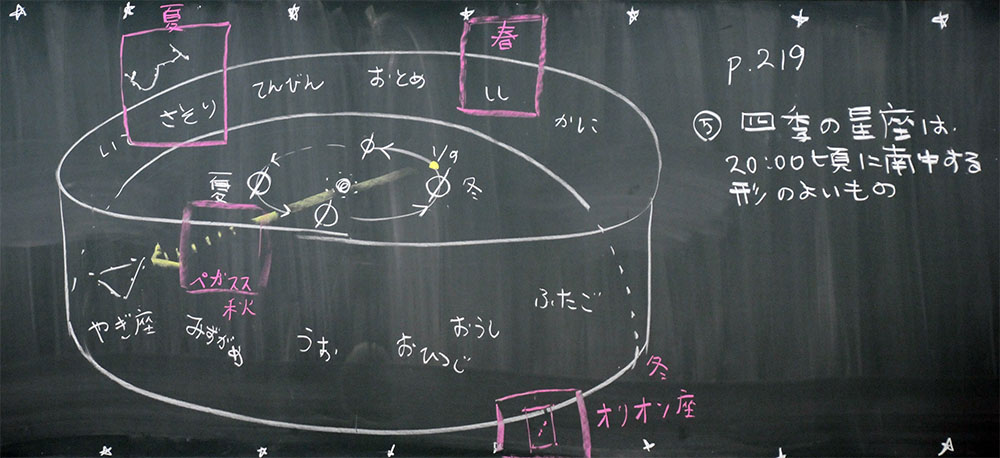 夏
さそり
てんびん
おとめ
春
しし
かに
い
1/9
冬
夏
ペガスス
秋
やぎ座
みずがめ
うお
おひつじ
おうし
ふたご
冬
オリオン座
p.219
⑤ 四季の星座は、
20:00頃に南中する
形のよいもの